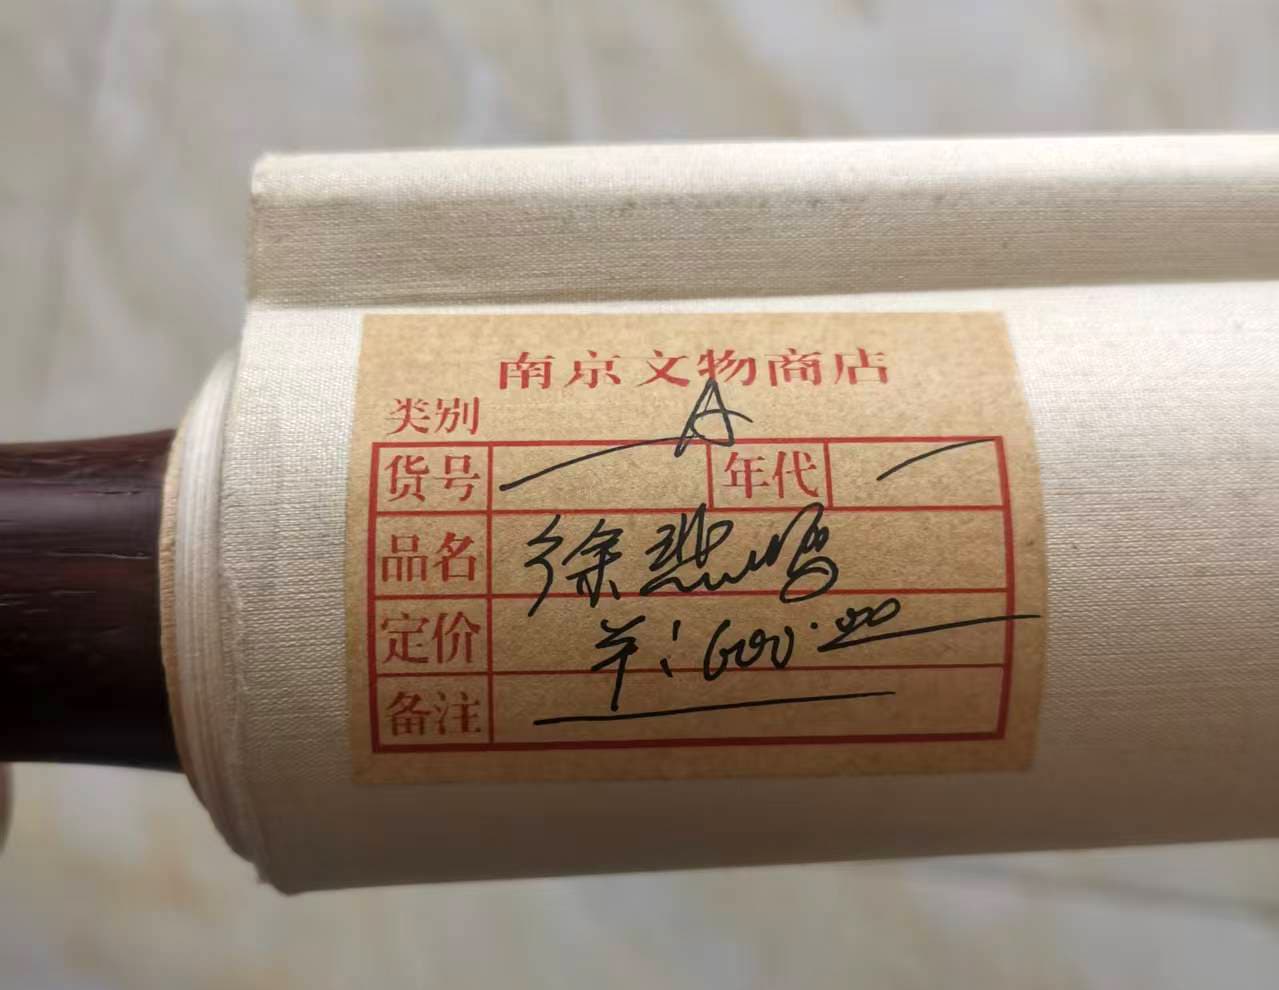 南京文物商店
类别 A
货号 — 年代 —
品名 徐悲鸿
定价 羊:600.00
备注 —